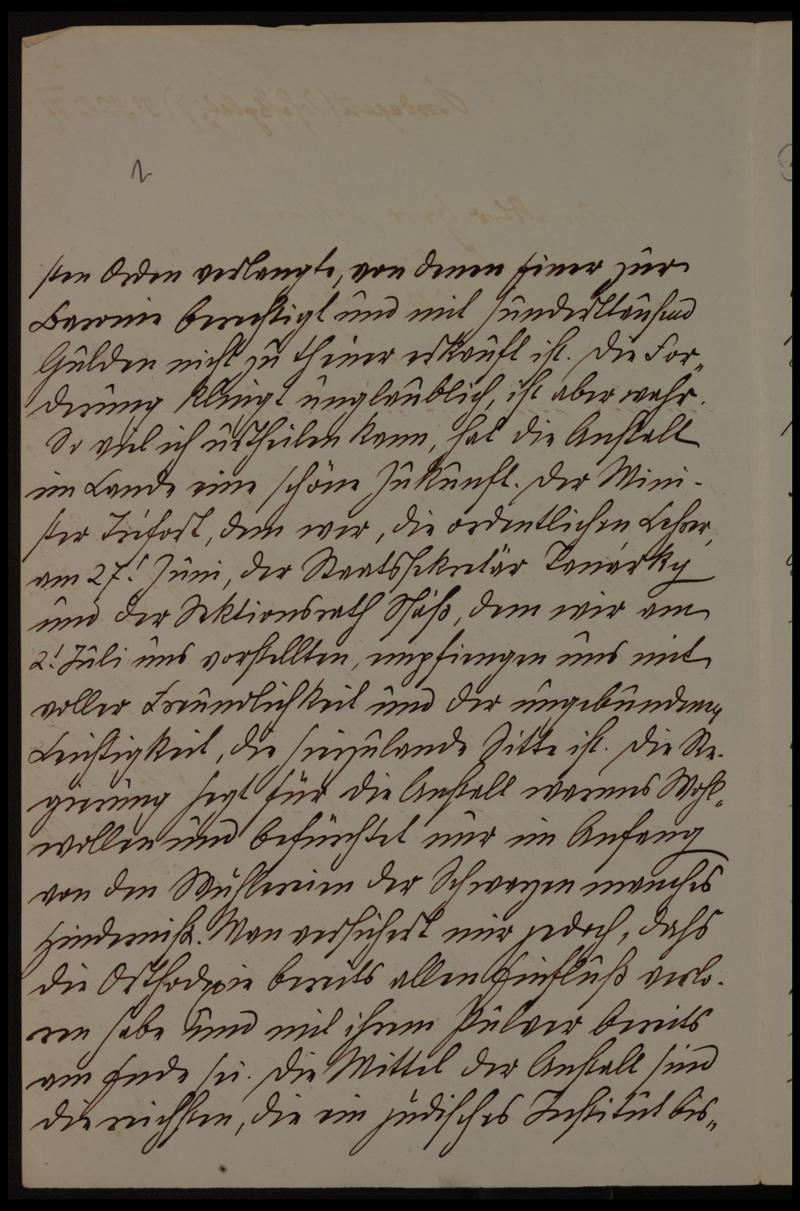 2
sten Orden verlangte, von denen Einer zur
Baronie berechtigt und mit hunderttausend
Gulden nicht zu theuer erkauft ist. Die For„
derung klingt unglaublich, ist aber wahr.
So viel ich urtheilen kann, hat die Anstalt
im Lande eine schöne Zukunft. Der Mini-
ster Tréfort, dem wir, die ordentlichen Lehrer,
am 27! Juni, der Staatssekretär Tanárky
und der Sektionsrath Szász, dem wir am
2! Juli uns vorstellten, empfiengen uns mit
voller Freundlichkeit und der ungebundenen
Leichtigkeit, die hierzulande Sitte ist. Die Re-
gierung hegt für die Anstalt warmes Wohl„
wollen und befürchtet nur im Anfang
von den Wühlereien der Schwarzen manches
Hinderniß. Man versichert mir jedoch, dass
die Orthodoxie bereits allen Einfluß verlo-
ren habe und mit ihrem Pulver bereits
am Ende sei. Die Mittel der Anstalt sind
die reichsten, die ein jüdisches Institut bis„